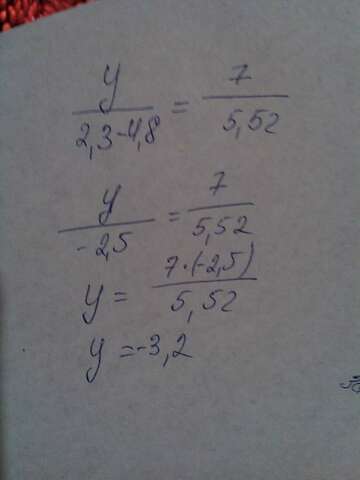 y/(2,3-4,8) = 7/5,52
y/-2,5 = 7/5,52
y = 7·(-2,5)/5,52
y = -3,2